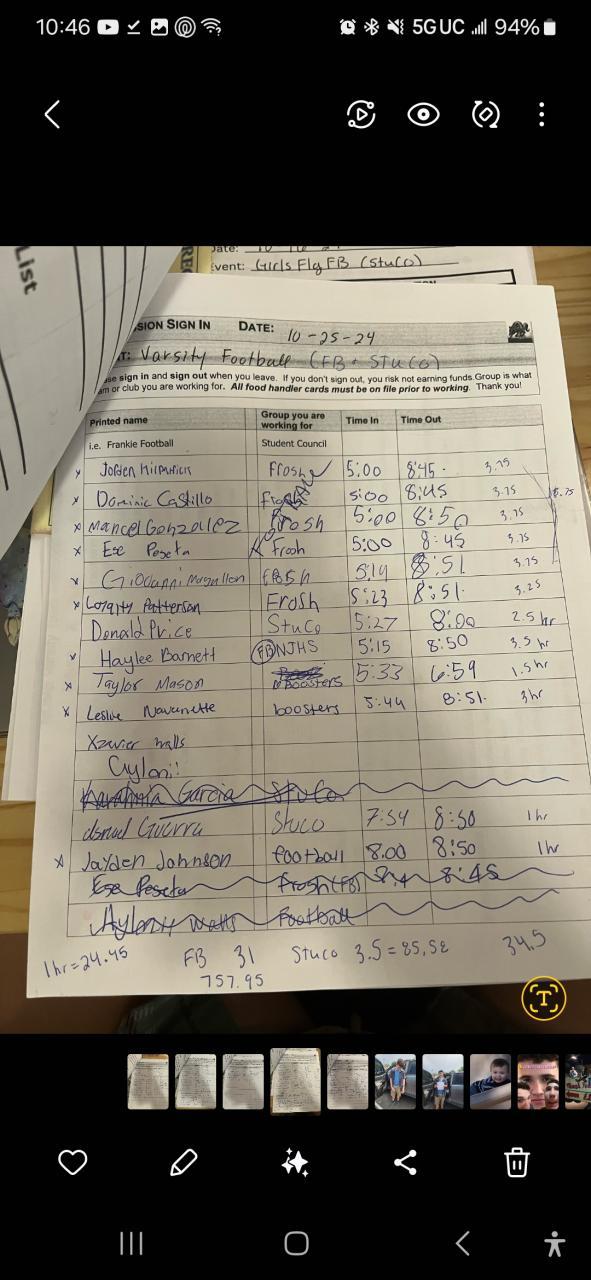 10:46 5G UC 94%
List
REC
Date: 10
Event: Girls Flg FB (StuCo)
SION SIGN IN DATE: 10-25-24
T: Varsity Football (FB + STUCO)
se sign in and sign out when you leave. If you don't sign out, you risk not earning funds. Group is what
am or club you are working for. All food handler cards must be on file prior to working. Thank you!
Printed name Group you are working for Time In Time Out
i.e. Frankie Football Student Council
x Jorden Frosh 5:00 8:45 3.75
x Dominic Castillo 5:00 8:45 3.75 18.75
x Mancel Gonzalez Frosh 5:00 8:50 3.75
x Ese Peseta Frosh 5:00 8:45 3.75
x Giovanni frosh 5:14 8:51 3.75
x Loyalty Patterson Frosh 5:23 8:51 3.25
Donald Price StuCo 5:27 8:00 2.5 hr
x Haylee Barnett (FB) NJHS 5:15 8:50 3.5 hr
x Taylor Mason Boosters 5:33 6:59 1.5 hr
x Leslie Navarrette boosters 5:44 8:51 3 hr
Xzavier walls
Garcia StuCo
Guerra Stuco 7:54 8:50 1 hr
x Jayden Johnson football 8:00 8:50 1 hr
Ese Peseta Frosh (FB) 8:45
Watts Football
1 hr = 24.45 FB 31 Stuco 3.5 = 85.58 34.5
757.95
T